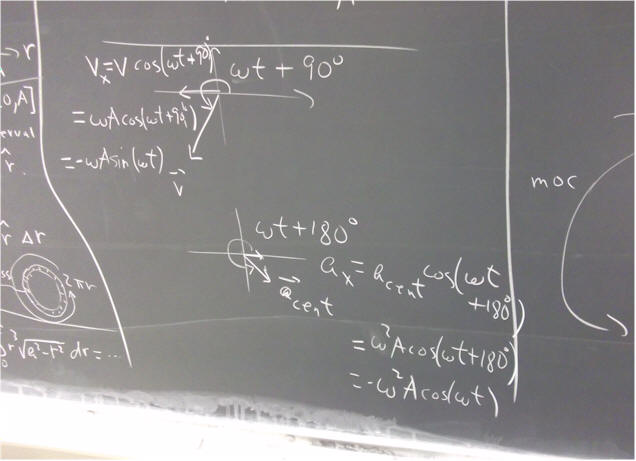 →r
0,A]
erval
r̂
r̂ Δr
2πr
r²√(a²-r²) dr = ...
Vₓ = V cos(ωt+90°)
= ωA cos(ωt+90°)
= -ωA sin(ωt)
ωt + 90°
v⃗
ωt+180°
a⃗cent
aₓ = acent cos(ωt
+180°)
= ω²A cos(ωt+180°)
= -ω²A cos(ωt)
moc